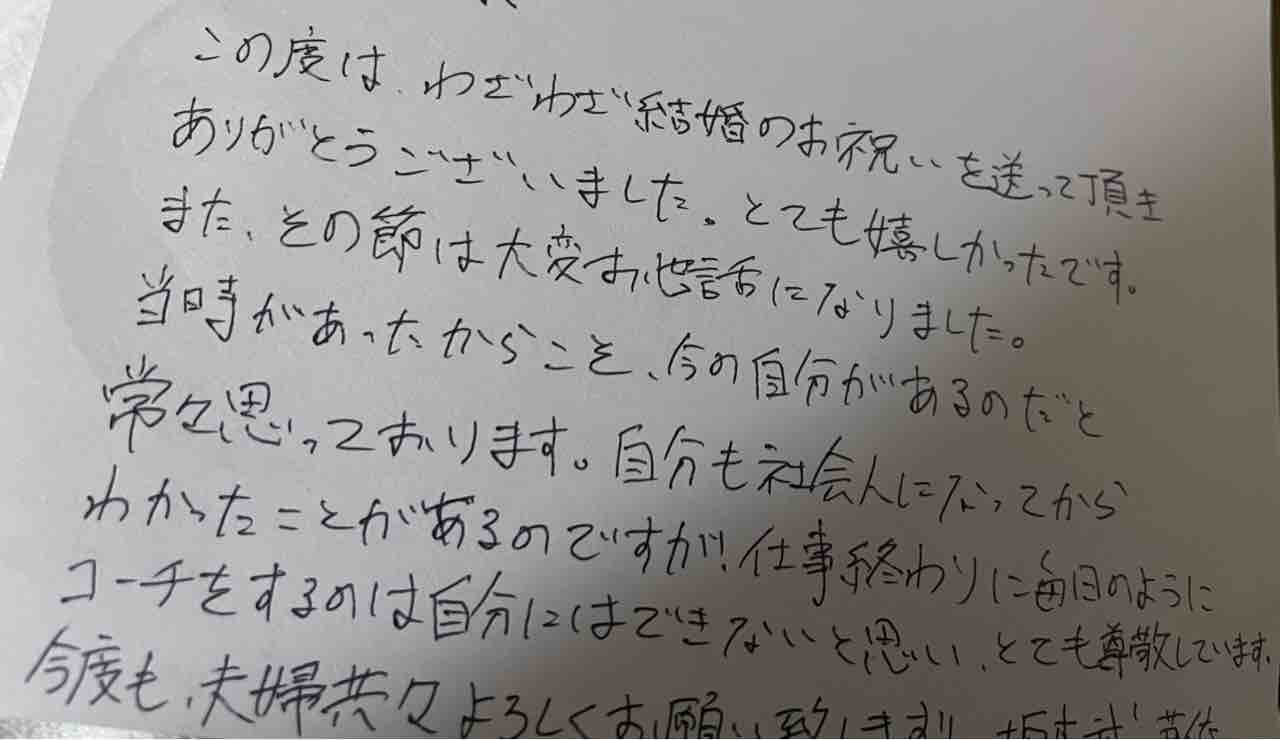 この度は、わざわざ結婚のお祝いを送って頂き
ありがとうございました。とても嬉しかったです。
また、その節は大変お世話になりました。
当時があったからこそ、今の自分があるのだと
常々思っております。自分も社会人になってから
わかったことがあるのですが、仕事終わりに毎日のように
コーチをするのは自分にはできないと思い、とても尊敬しています。
今度も、夫婦共々よろしくお願い致します!!